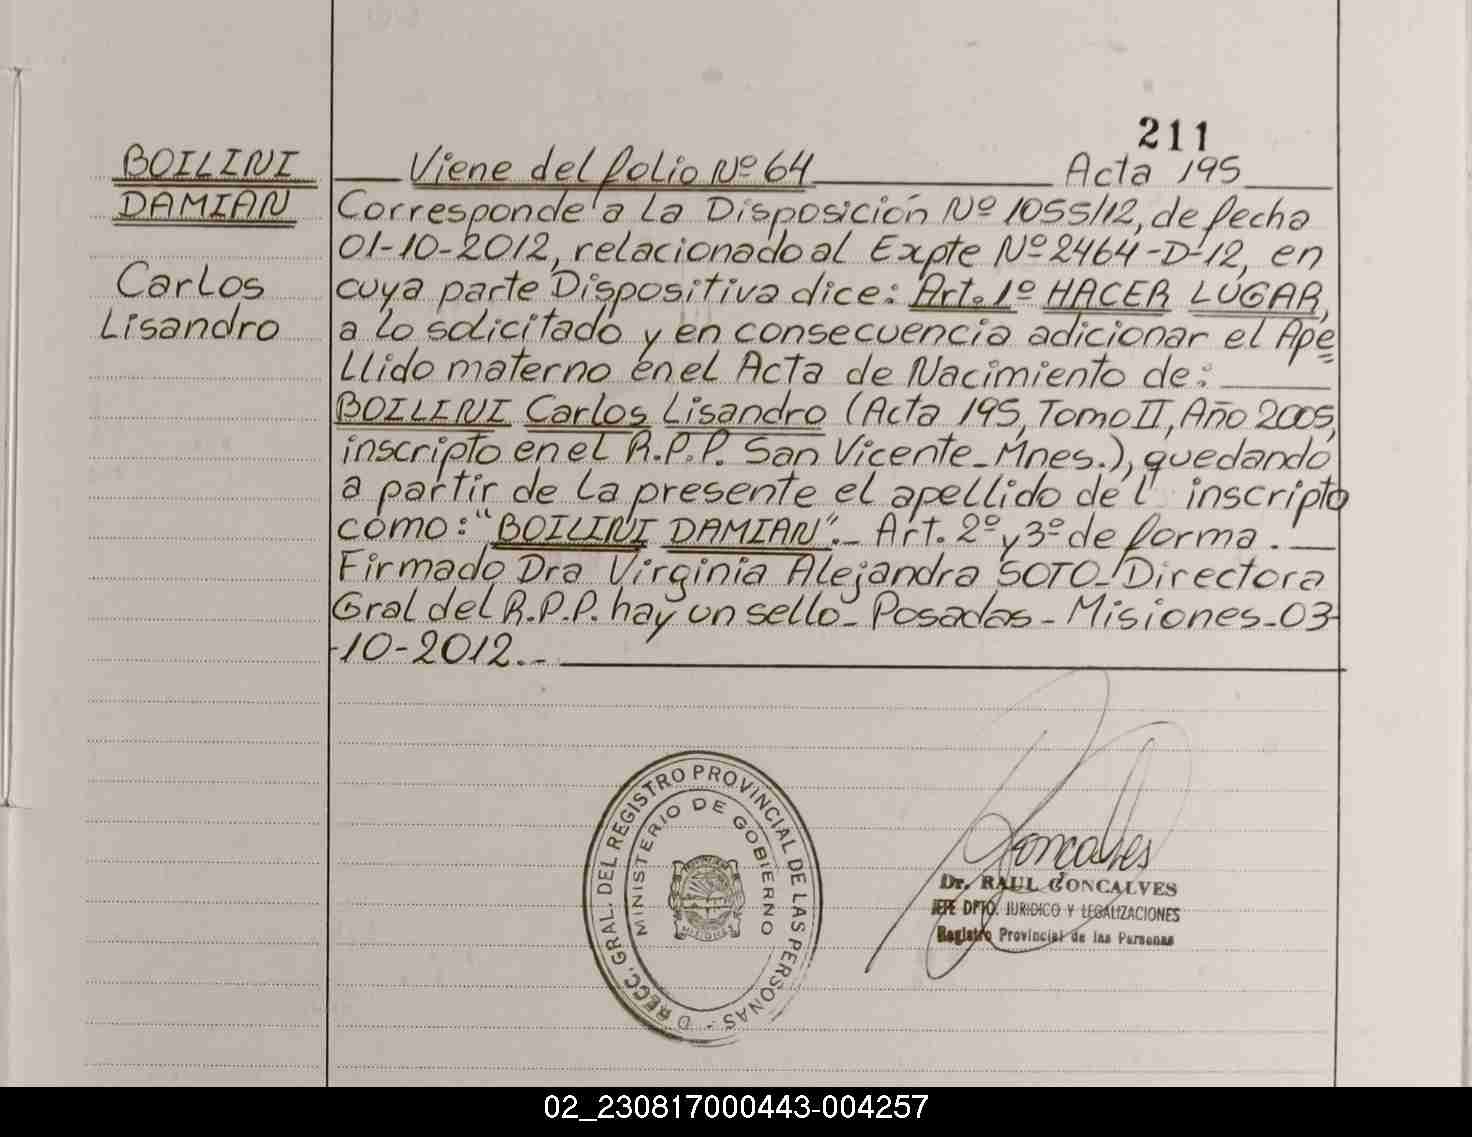 211
BOILINI
DAMIAN
Carlos
Lisandro
Viene del folio Nº 64 Acta 195
Corresponde a la Disposición Nº 1055/12, de fecha
01-10-2012, relacionado al Expte Nº 2464-D-12, en
cuya parte Dispositiva dice: Art. 1º HACER LUGAR,
a lo solicitado y en consecuencia adicionar el Ape=
llido materno en el Acta de Nacimiento de:
BOILINI Carlos Lisandro (Acta 195, Tomo II, Año 2005,
inscripto en el R.P.P. San Vicente-Mnes.), quedando
a partir de la presente el apellido del inscripto
como: "BOILINI DAMIAN".- Art. 2º y 3º de forma.-
Firmado Dra Virginia Alejandra SOTO-Directora
Gral del R.P.P. hay un sello- Posadas - Misiones-03-
-10-2012.-
DIRECC. GRAL. DEL REGISTRO PROVINCIAL DE LAS PERSONAS -
MINISTERIO DE GOBIERNO
MISIONES
Goncalves
Dr. RAUL GONCALVES
JEFE DPTO. JURIDICO Y LEGALIZACIONES
Registro Provincial de las Personas
02_230817000443-004257